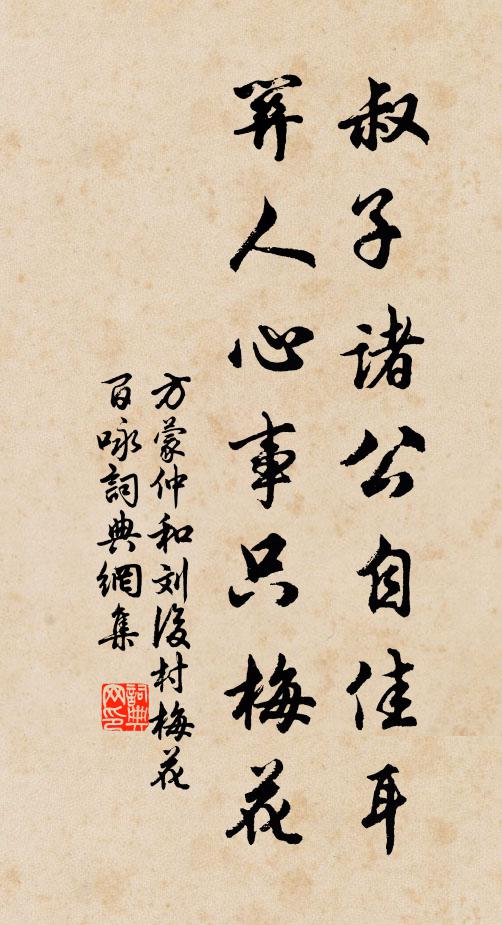 叔子諸公自佳耳
人心事只梅花
方蒙仲和刘後村梅花
百咏詞典網集
詞典
网印